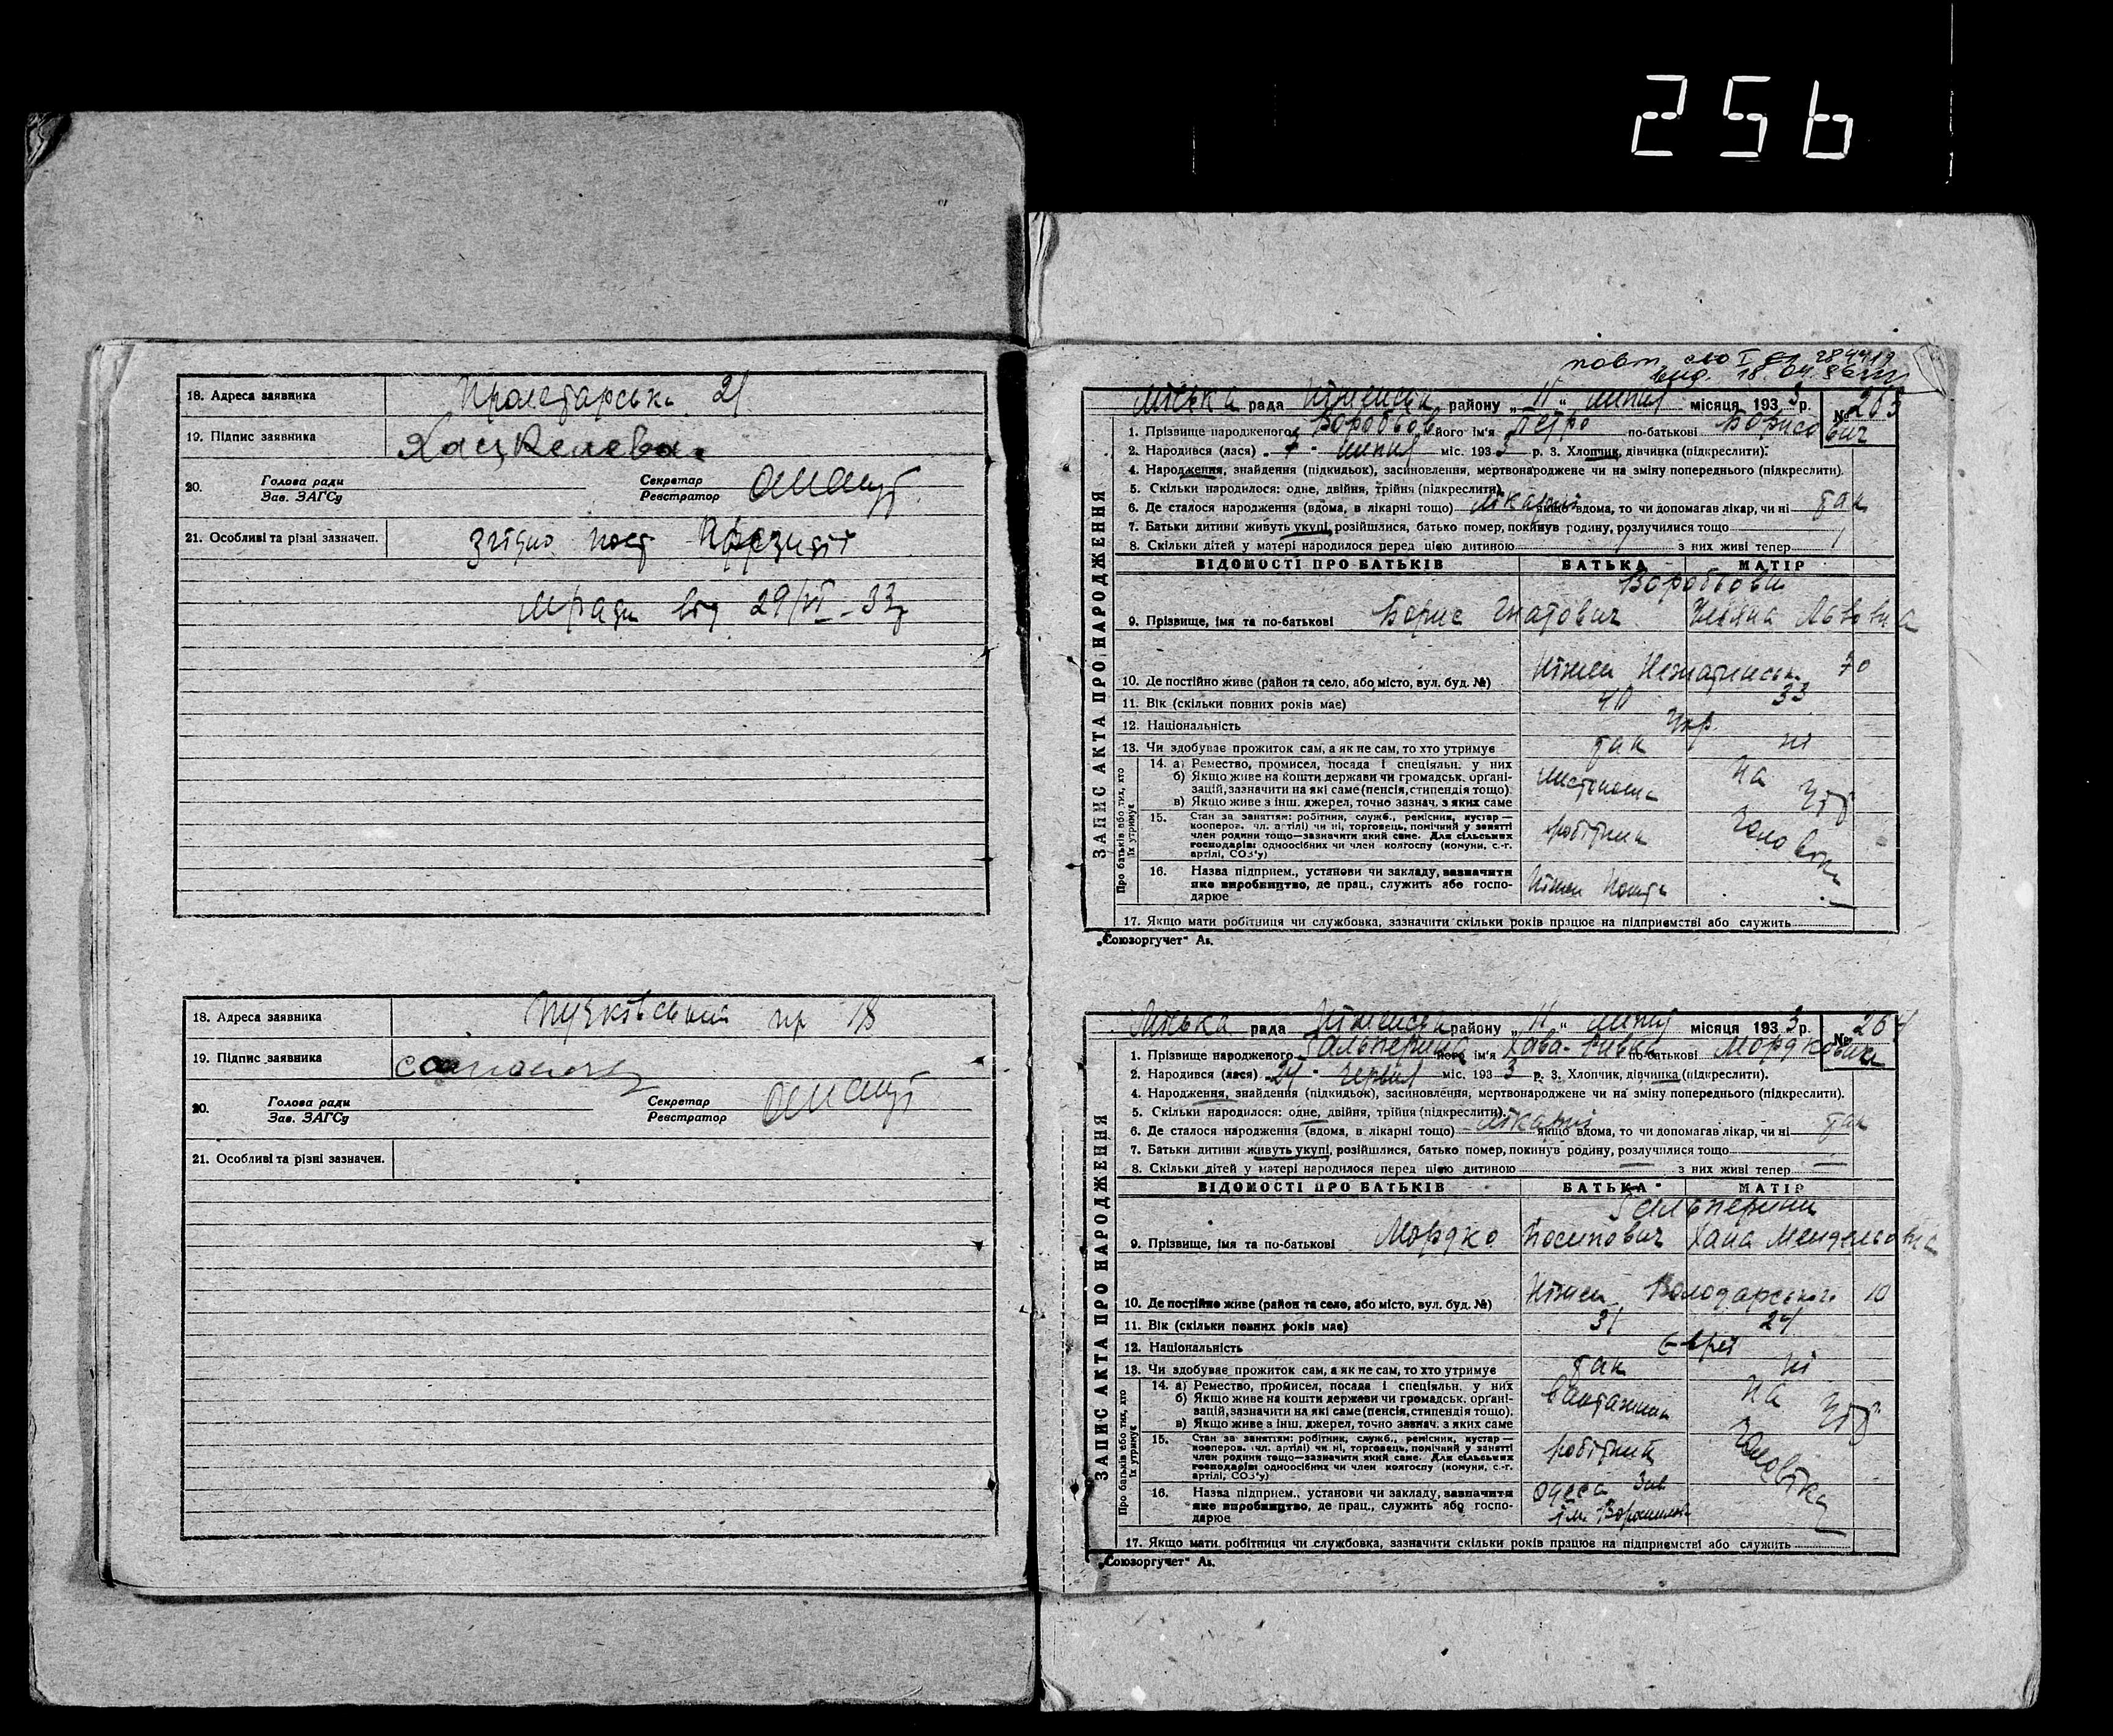 256
18. Адреса заявника Пролетарська 21
19. Підпис заявника Хацкелева
20. Голова ради Зав. ЗАГСу Секретар Реєстратор
21. Особливі та різні зазначен. Згідно пост Президії
м/ради від 29/VI - 33р
18. Адреса заявника пр 18
19. Підпис заявника
20. Голова ради Зав. ЗАГСу Секретар Реєстратор
21. Особливі та різні зазначен.
повт. сво I
вид. 18.04.
ЗАПИС АКТА ПРО НАРОДЖЕННЯ
Міська рада Ніженськ району „11“ липня місяця 1933 р. № 263
1. Прізвище народженого Воробьов його ім'я Петро по-батькові Борисович
2. Народився (лася) 7 липня міс. 1933 р. 3. Хлопчик, дівчинка (підкреслити).
4. Народження, знайдення (підкидьок), засиновлення, мертвонароджене чи на зміну попереднього (підкреслити).
5. Скільки народилося: одне, двійня, трійня (підкреслити).
6. Де сталося народження (вдома, в лікарні тощо) лікарні якщо вдома, то чи допомагав лікар, чи ні так
7. Батьки дитини живуть укупі, розійшлися, батько помер, покинув родину, розлучилися тощо
8. Скільки дітей у матері народилося перед цією дитиною 1 з них живі тепер 1
ВІДОМОСТІ ПРО БАТЬКІВ БАТЬКА МАТІР
Воробьови
9. Прізвище, імя та по-батькові Борис Гнатович Львовна
10. Де постійно живе (район та село, або місто, вул. буд. №) Ніжен 70
11. Вік (скільки повних років має) 40 33
12. Національність Укр.
13. Чи здобуває прожиток сам, а як не сам, то хто утримує так ні
Про батьків або тих, хто їх утримує
14. а) Ремество, промисел, посада і спеціяльн. у них листоноша На
б) Якщо живе на кошти держави чи громадськ. органі-
зацій, зазначити на які саме (пенсія, стипендія тощо) утр
в) Якщо живе з інш. джерел, точно зазнач. з яких саме
15. Стан за заняттям: робітник, служб., ремісник, кустар —
кооперов. чл. артілі) чи ні, торговець, помічний у занятті
член родини тощо—зазначити який саме. Для сільських
господарів: одноосібних чи член колгоспу (комуни, с.-г.
артілі, СОЗ'у) робітник чоловіка
16. Назва підприєм., установи чи закладу, зазначити
яке виробництво, де прац., служить або госпо-
дарює Ніжен Пошта
17. Якщо мати робітниця чи службовка, зазначити скільки років працює на підприємстві або служить
„Союзоргучет“ Ав.
ЗАПИС АКТА ПРО НАРОДЖЕННЯ
Міська рада Ніженськ району „11“ липня місяця 1933 р. № 264
1. Прізвище народженого Гальперина його ім'я Хава-Ривка по-батькові Мордковна
2. Народився (лася) 24 червня міс. 1933 р. 3. Хлопчик, дівчинка (підкреслити).
4. Народження, знайдення (підкидьок), засиновлення, мертвонароджене чи на зміну попереднього (підкреслити).
5. Скільки народилося: одне, двійня, трійня (підкреслити).
6. Де сталося народження (вдома, в лікарні тощо) лікарні якщо вдома, то чи допомагав лікар, чи ні так
7. Батьки дитини живуть укупі, розійшлися, батько помер, покинув родину, розлучилися тощо
8. Скільки дітей у матері народилося перед цією дитиною — з них живі тепер —
ВІДОМОСТІ ПРО БАТЬКІВ БАТЬКА МАТІР
Гальперини
9. Прізвище, імя та по-батькові Мордко Йосипович Хана Мендельовна
10. Де постійно живе (район та село, або місто, вул. буд. №) Ніжен Володарського 10
11. Вік (скільки повних років має) 31 24
12. Національність Євреї
13. Чи здобуває прожиток сам, а як не сам, то хто утримує так ні
Про батьків або тих, хто їх утримує
14. а) Ремество, промисел, посада і спеціяльн. у них вантажник На
б) Якщо живе на кошти держави чи громадськ. органі-
зацій, зазначити на які саме (пенсія, стипендія тощо). утр
в) Якщо живе з інш. джерел, точно зазнач. з яких саме
15. Стан за заняттям: робітник, служб., ремісник, кустар —
кооперов. чл. артілі) чи ні, торговець, помічний у занятті
член родини тощо—зазначити який саме. Для сільських
господарів: одноосібних чи член колгоспу (комуни, с.-г.
артілі, СОЗ'у) робітник чоловіка
16. Назва підприєм., установи чи закладу, зазначити
яке виробництво, де прац., служить або госпо-
дарює Одеса Зав ім. Ворошилова
17. Якщо мати робітниця чи службовка, зазначити скільки років працює на підприємстві або служить
„Союзоргучет“ Ав.